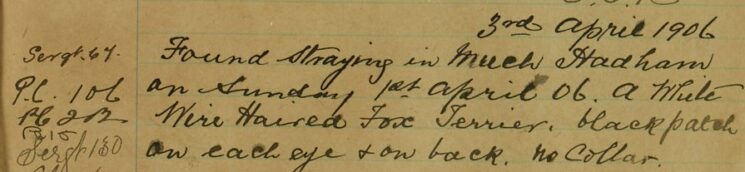 3rd April 1906
Sergt. 67.
P.C. 106
Sergt 130
Found straying in Much Hadham
on Sunday 1st April 06. A White
Wire Haired Fox Terrier. black patch
on each eye & on back. no Collar.